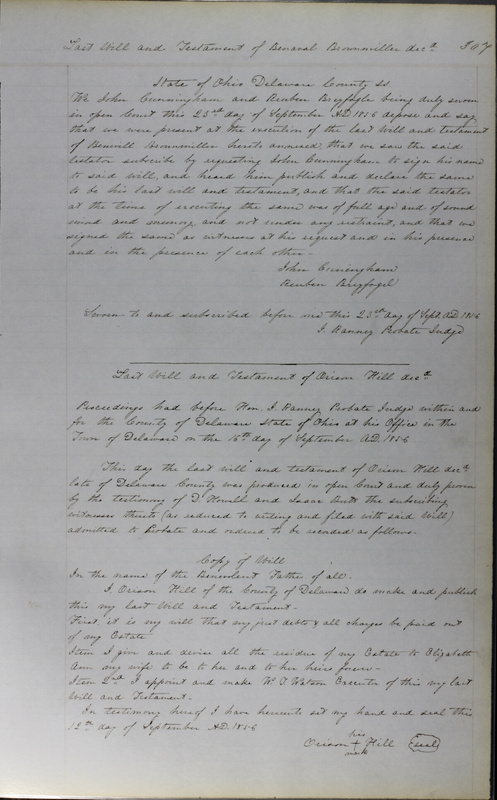 Last Will and Testament of Benaval Brownmiller decd 507
State of Ohio Delaware County ss.
We John Cunningham and Reuben Bryfogle being duly sworn
in open Court this 23rd day of September A.D. 1856 depose and say
that we were present at the execution of the last Will and testament
of Benvill Brownmiller hereto annexed, that we saw the said
testator subscribe by requesting John Cunningham to sign his name
to said will, and heard him publish and declare the same
to be his last will and testament, and that the said testator
at the time of executing the same was of full age and of sound
mind and memory, and not under any restraint, and that we
signed the same as witnesses at his request and in his presence
and in the presence of each other -
John Cuningham
Reuben Bryfogel
Sworn to and subscribed before me this 23rd day of Sept A.D. 1856
J. Ranney Probate Judge
Last Will and Testament of Orison Hill decd
Proceedings had before Hon. J. Ranney Probate Judge within and
for the County of Delaware State of Ohio at his Office in the
Town of Delaware on the 16th day of September A.D. 1856
This day the last will and testament of Orison Hill decd
late of Delaware County was produced in open Court and duly proven
by the testimony of D Howell and Isaac the subscribing
witnesses thereto (as reduced to writing and filed with said Will)
admitted to Probate and ordered to be recorded as follows.
Copy of Will
In the name of the Benevolent Father of all -
I Orison Hill of the County of Delaware do make and publish
this my last Will and Testament -
First, it is my will that my just debts & all charges be paid out
of my Estate
Item I give and devise all the residue of my Estate to Elizabeth
Ann my wife to be to her and to her heirs forever -
Item 2nd I appoint and make Wm T. Watson Executor of this my last
Will and Testament -
In testimony hereof I have hereunto set my hand and seal this
12th day of September A.D. 1856
his
Orison + Hill seal
mark